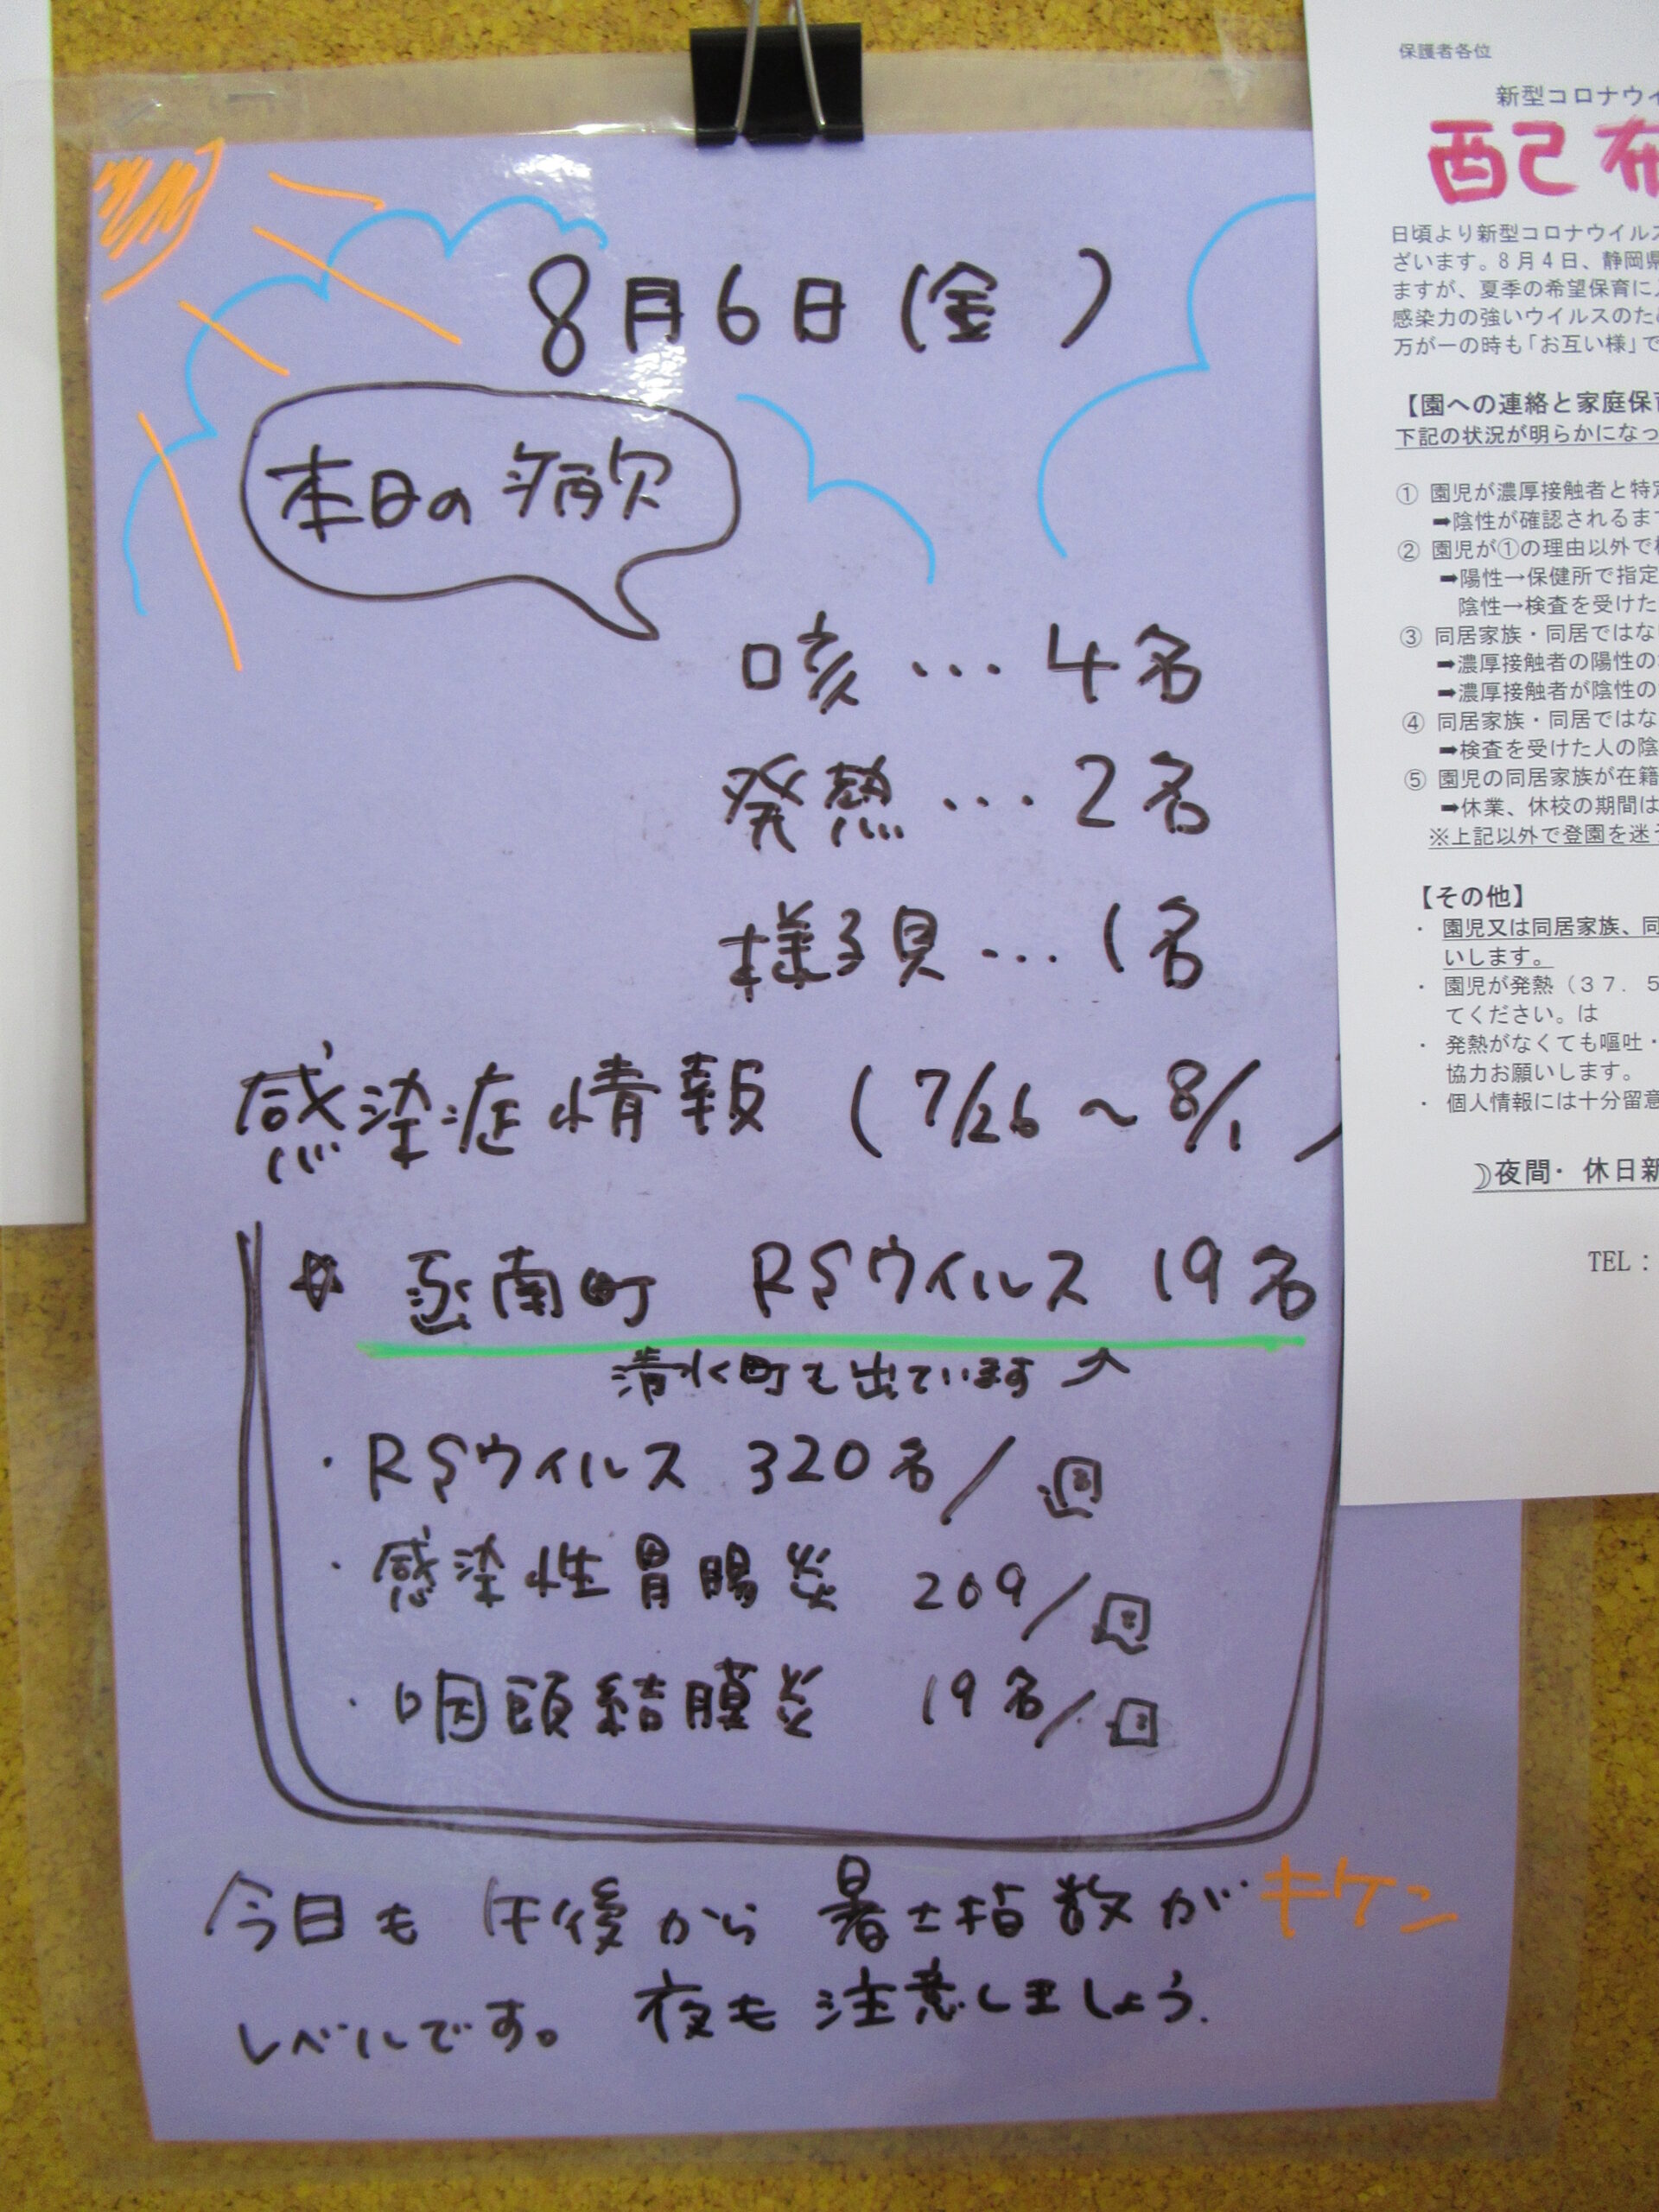 8月6日(金)
本日の病欠
咳…4名
発熱…2名
様子見…1名
感染症情報 (7/26～8/1)
☆ 函南町 RSウイルス 19名
清水町も出ています
・RSウイルス 320名/週
・感染性胃腸炎 209/週
・咽頭結膜炎 19名/週
今日も 午後から 暑さ指数が キケン
レベルです。 夜も 注意しましょう.
保護者各位
新型コロナウィ
配布
日頃より新型コロナウイルス
ざいます。8月4日、静岡県
ますが、夏季の希望保育に入
感染力の強いウイルスのため
万が一の時も「お互い様」で
【園への連絡と家庭保育
下記の状況が明らかになっ
① 園児が濃厚接触者と特定
➡陰性が確認されるまで
② 園児が①の理由以外で検
➡陽性→保健所で指定
陰性→検査を受けた
③ 同居家族・同居ではな
➡濃厚接触者の陽性の
➡濃厚接触者が陰性の
④ 同居家族・同居ではな
➡検査を受けた人の陰
⑤ 園児の同居家族が在籍
➡休業、休校の期間は
※上記以外で登園を迷う
【その他】
・ 園児又は同居家族、同
いします。
・ 園児が発熱（37．5
てください。は
・ 発熱がなくても嘔吐・
協力お願いします。
・ 個人情報には十分留意
☽夜間・休日新
TEL：